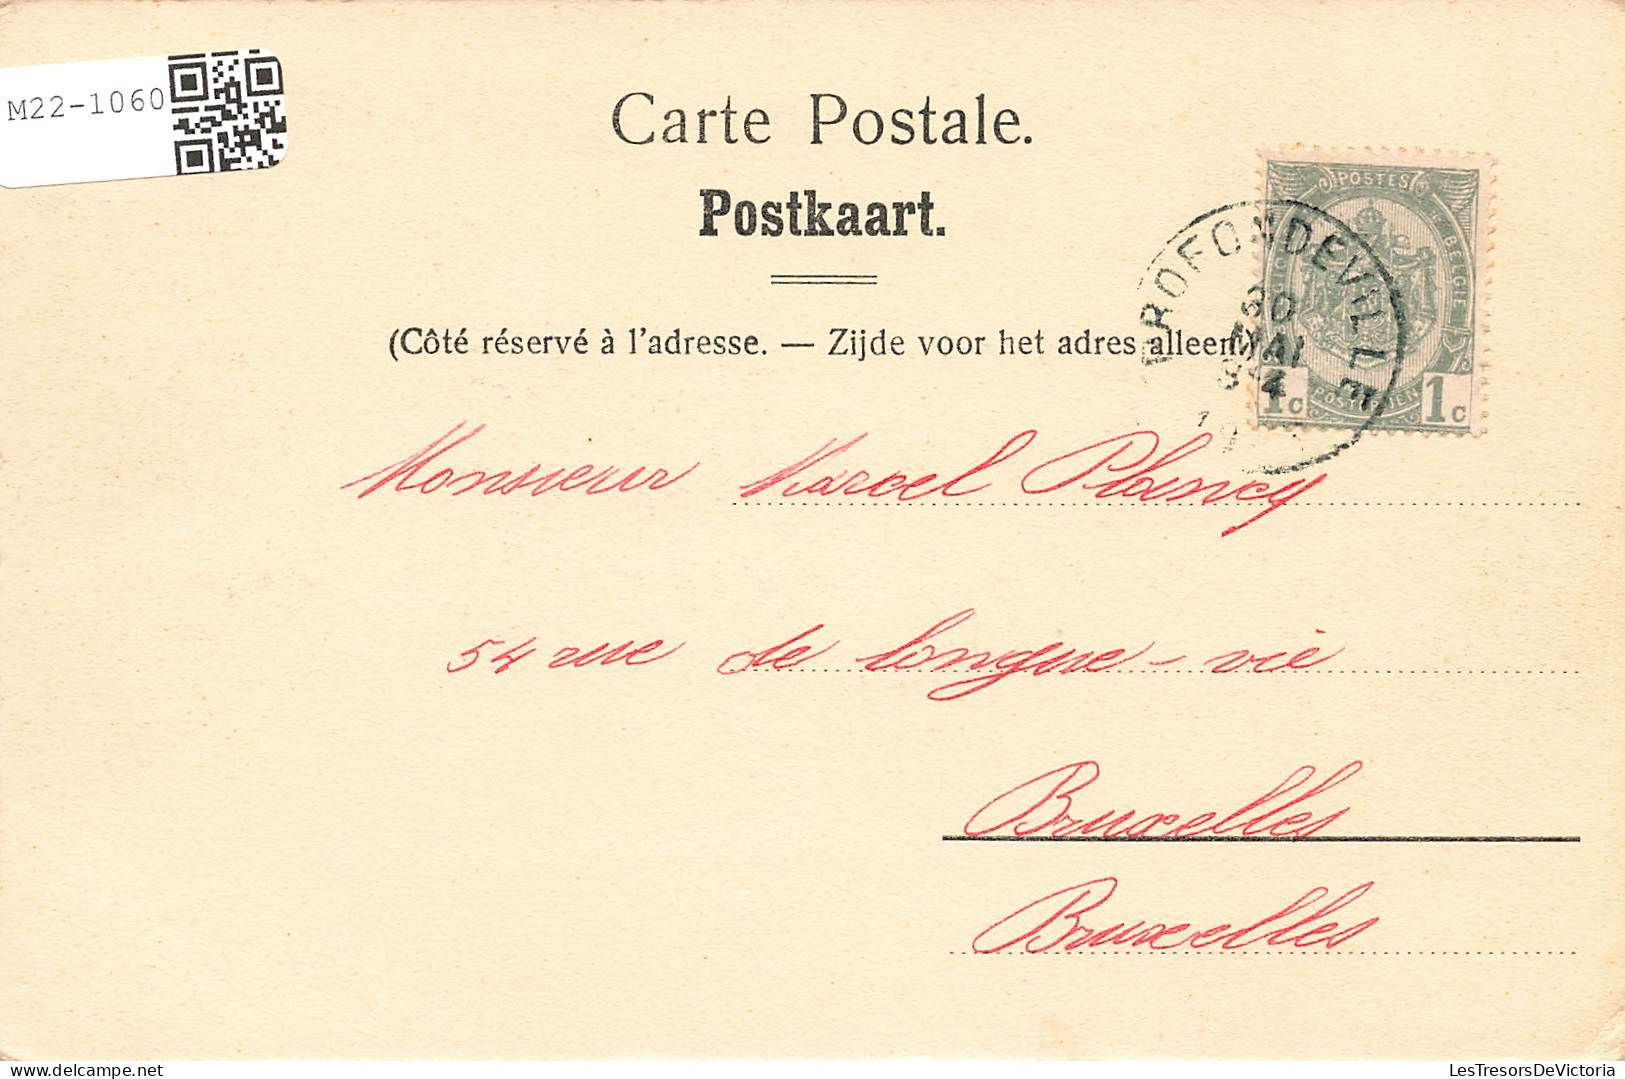 M22-1060
Carte Postale.
Postkaart.
(Côté réservé à l'adresse. — Zijde voor het adres alleen
POSTES
BELGIQUE
BELGIE
POSTERIJEN
1c 1c
PROFONDEVILLE
30
MAI
Monsieur Marcel Plancy
54 rue de longue-vie
Bruxelles
Bruxelles
delcampe.net
LesTresorsDeVictoria